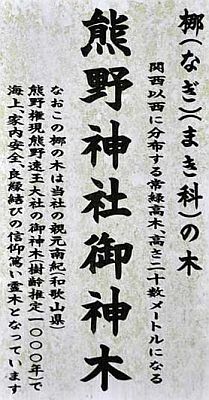 梛(なぎ)(まき科)の木
関西以西に分布する常緑高木、高さ二十数メートルになる
熊野神社御神木
なおこの梛の木は当社の親元南紀(和歌山県)
熊野権現熊野速玉大社の御神木(樹齢推定一〇〇〇年)で
海上、家内安全、良縁結びの信仰篤い霊木となっています